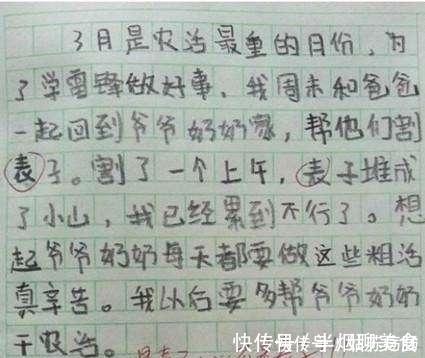 3月是农活最重的月份，为
了学雷锋做好事，我周末和爸爸
一起回到爷爷奶奶家，帮他们割
表子。割了一个上午，表子堆成
了小山，我已经累到不行了。想
起爷爷奶奶每天都要做这些粗活
真辛苦。我以后要多帮爷爷奶奶
干农活。
快传号/半烟聊美食